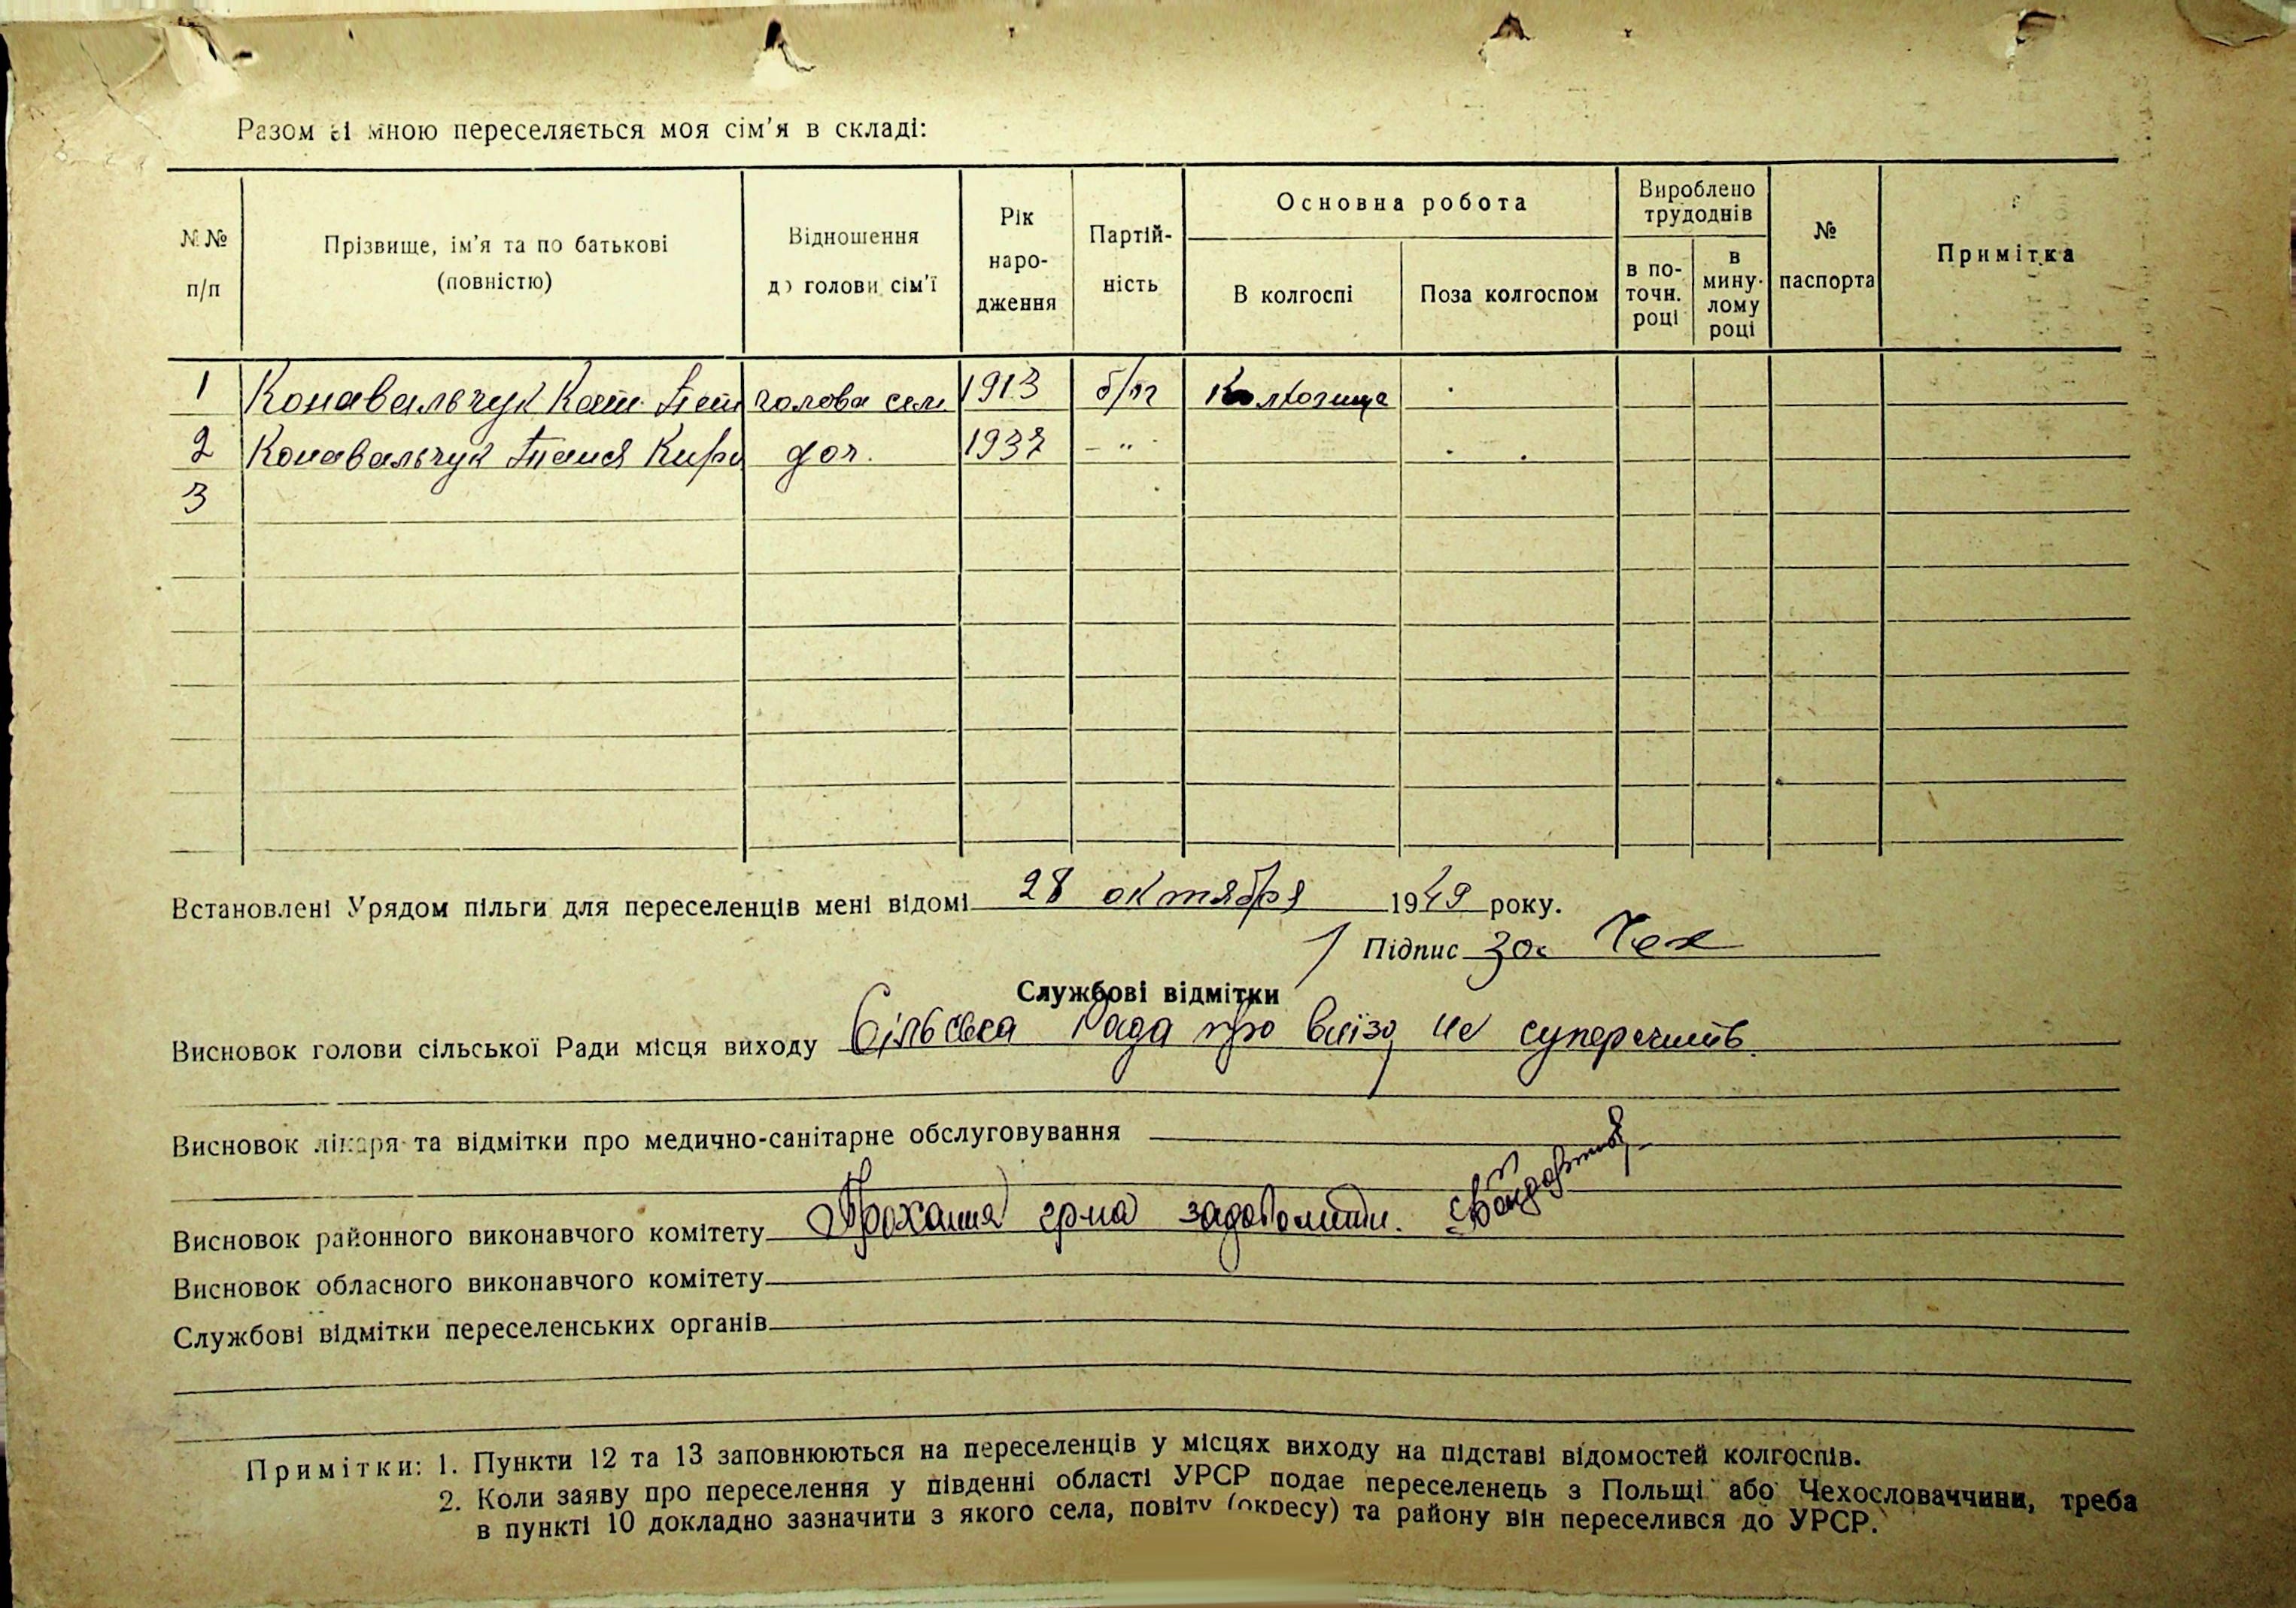 Разом зі мною переселяється моя сім'я в складі:
№№ п/п
Прізвище, ім'я та по батькові (повністю)
Відношення до голови сім'ї
Рік народження
Партійність
Основна робота
В колгоспі
Поза колгоспом
Вироблено трудоднів
в поточн. році
в минулому році
№ паспорта
Примітка
1 Конавальчук Кат. голова сем 1913 б/п Колхозница
2 Конавальчук доч. 1937 - " -
3
Встановлені Урядом пільги для переселенців мені відомі 28 октября 1949 року.
Підпис за
Службові відмітки
Висновок голови сільської Ради місця виходу Сільська Рада про виїзд не суперечить.
Висновок лікаря та відмітки про медично-санітарне обслуговування
Висновок районного виконавчого комітету Прохання гр-на задовольнити.
Висновок обласного виконавчого комітету
Службові відмітки переселенських органів
Примітки: 1. Пункти 12 та 13 заповнюються на переселенців у місцях виходу на підставі відомостей колгоспів.
2. Коли заяву про переселення у південні області УРСР подає переселенець з Польщі або Чехословаччини, треба
в пункті 10 докладно зазначити з якого села, повіту (окресу) та району він переселився до УРСР.